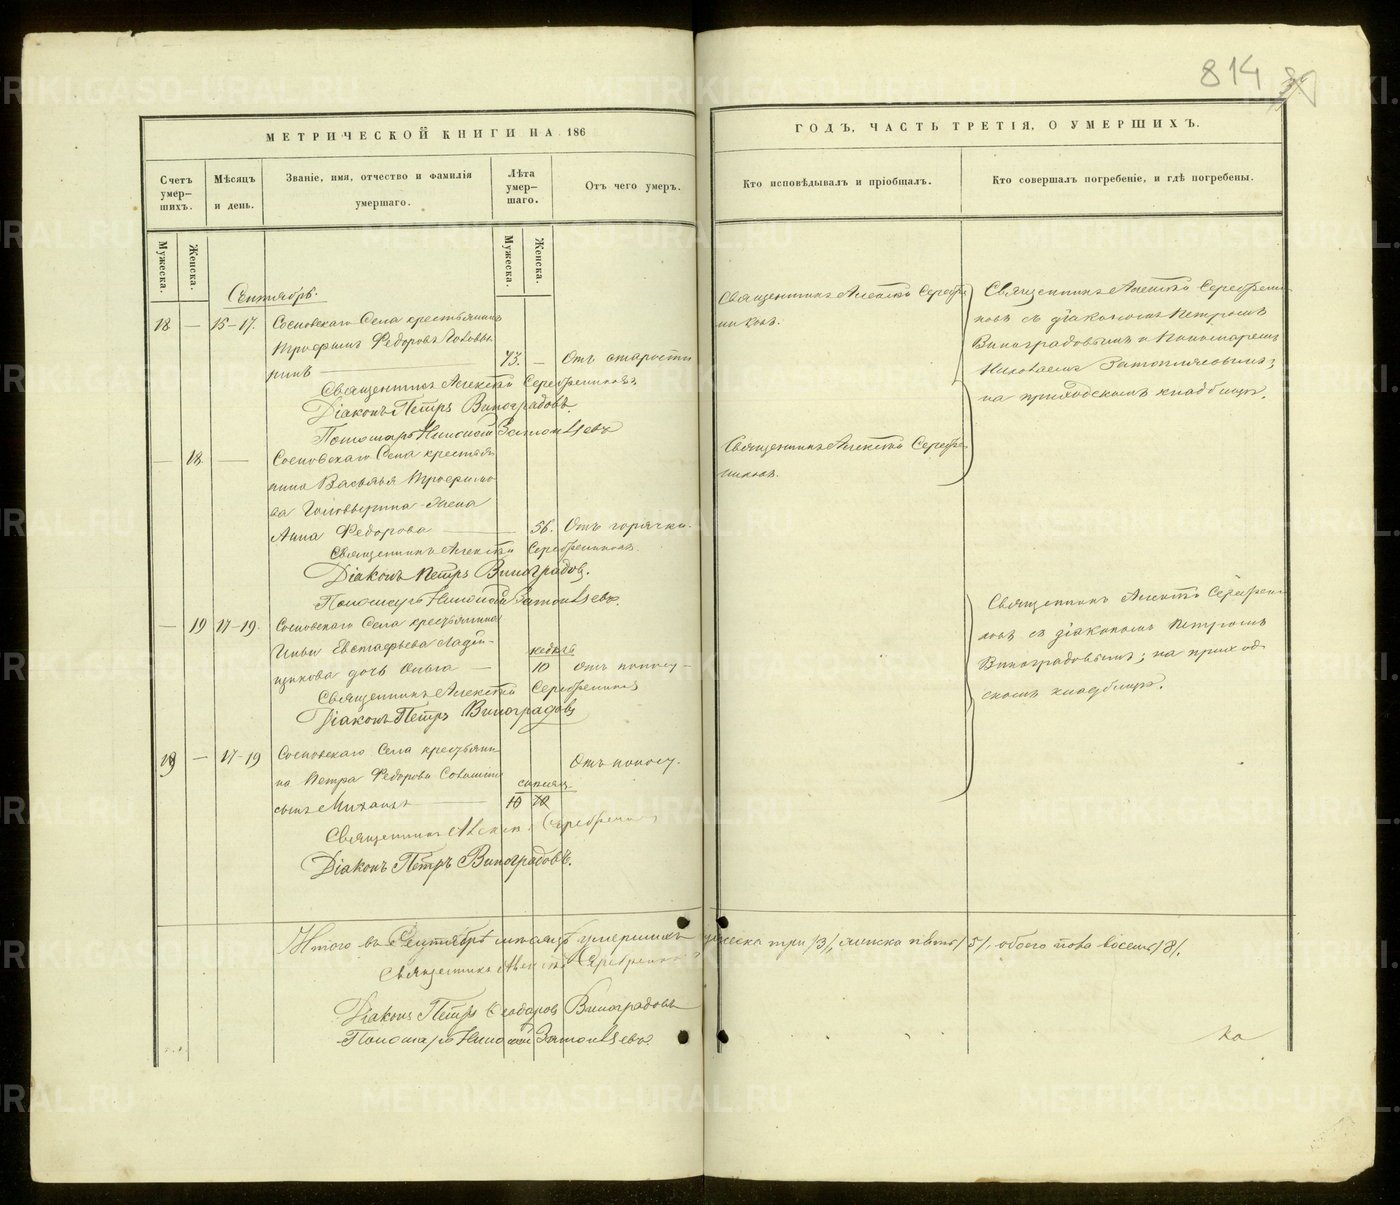 814
МЕТРИЧЕСКОЙ КНИГИ НА 186
ГОДЪ, ЧАСТЬ ТРЕТІЯ, О УМЕРШИХЪ.
Счетъ умер-шихъ.
Мѣсяцъ и день.
Званіе, имя, отчество и фамилія умершаго.
Лѣта умер-шаго.
Отъ чего умеръ.
Кто исповѣдывалъ и пріобщалъ.
Кто совершалъ погребеніе, и гдѣ погребены.
Мужеска.
Женска.
Мужеска.
Женска.
Сентябрь.
18 — 15-17. Сосновскаго Села крестьянинъ
Трофимъ Федоровъ Головы-
ринъ — 73. — Отъ старости
Священникъ Алексѣй Серебренниковъ
Діаконъ Петръ Виноградовъ.
Пономарь Николай
Священникъ Алексѣй Серебрен-
никовъ.
Священникъ Алексѣй Серебрен-
ковъ съ діакономъ Петромъ
Виноградовымъ и Пономаремъ
Николаемъ
на приходскомъ кладбищѣ.
— 18. — Сосновскаго Села крестья-
нина Василья Трофимо-
ва Головырина жена
Анна Федорова — 56. Отъ горячки.
Священникъ Алексѣй Серебренниковъ.
Діаконъ Петръ Виноградов.
Пономарь Николай
Священникъ Алексѣй Серебре-
никовъ.
— 19 17-19. Сосновскаго Села крестьянина
Ильи Евстафьева Ладей-
щикова дочь Ольга — недѣль 10 отъ поносу —
Священникъ Алексѣй Серебренников
Діаконъ Петръ Виноградов
Священникъ Алексѣй Серебрен-
ковъ съ діакономъ Петромъ
Виноградовымъ; на приход-
скомъ кладбищѣ.
19 — 17-19 Сосновскаго Села крестьяни-
на Петра Федорова
сынъ Михаилъ — 10 Отъ поносу.
Священникъ Алексѣй Серебрен
Діаконъ Петръ Виноградовъ.
Итого въ Сентябрѣ мѣсяцѣ умершихъ мужеска три /3/, женска пять /5/, обоего пола восемь /8/.
Священникъ Алексѣй Серебренников
Діаконъ Петръ Феодоров Виноградовъ
Пономарь Николай
METRIKI.GASO-URAL.RU